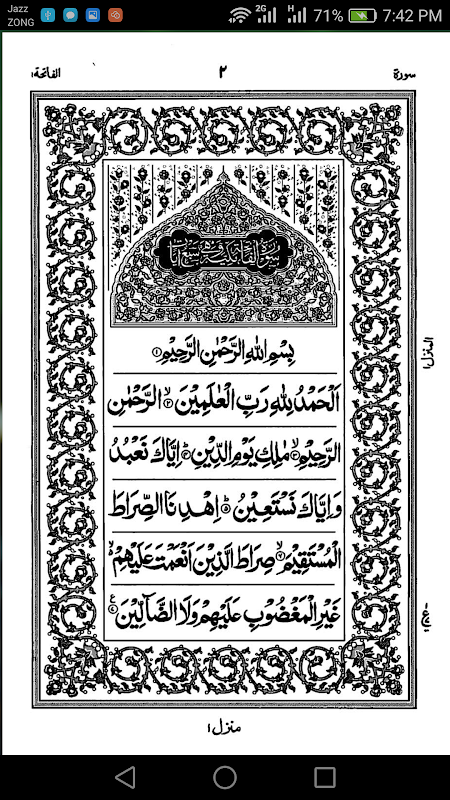 Jazz
ZONG
2G
H
71%
7:42 PM
سورة
٢
الفاتحة١
بِسْمِ اللهِ الرَّحْمٰنِ الرَّحِيْمِ ①
اَلْحَمْدُ لِلّٰهِ رَبِّ الْعٰلَمِيْنَ ۙ② الرَّحْمٰنِ
الرَّحِيْمِ ۙ③ مٰلِكِ يَوْمِ الدِّيْنِ ④ اِيَّاكَ نَعْبُدُ
وَاِيَّاكَ نَسْتَعِيْنُ ⑤ اِهْدِنَا الصِّرَاطَ
الْمُسْتَقِيْمَ ۙ صِرَاطَ الَّذِيْنَ اَنْعَمْتَ عَلَيْهِمْ
غَيْرِ الْمَغْضُوْبِ عَلَيْهِمْ وَلَا الضَّآلِّيْنَ
المنزل١
منزل١